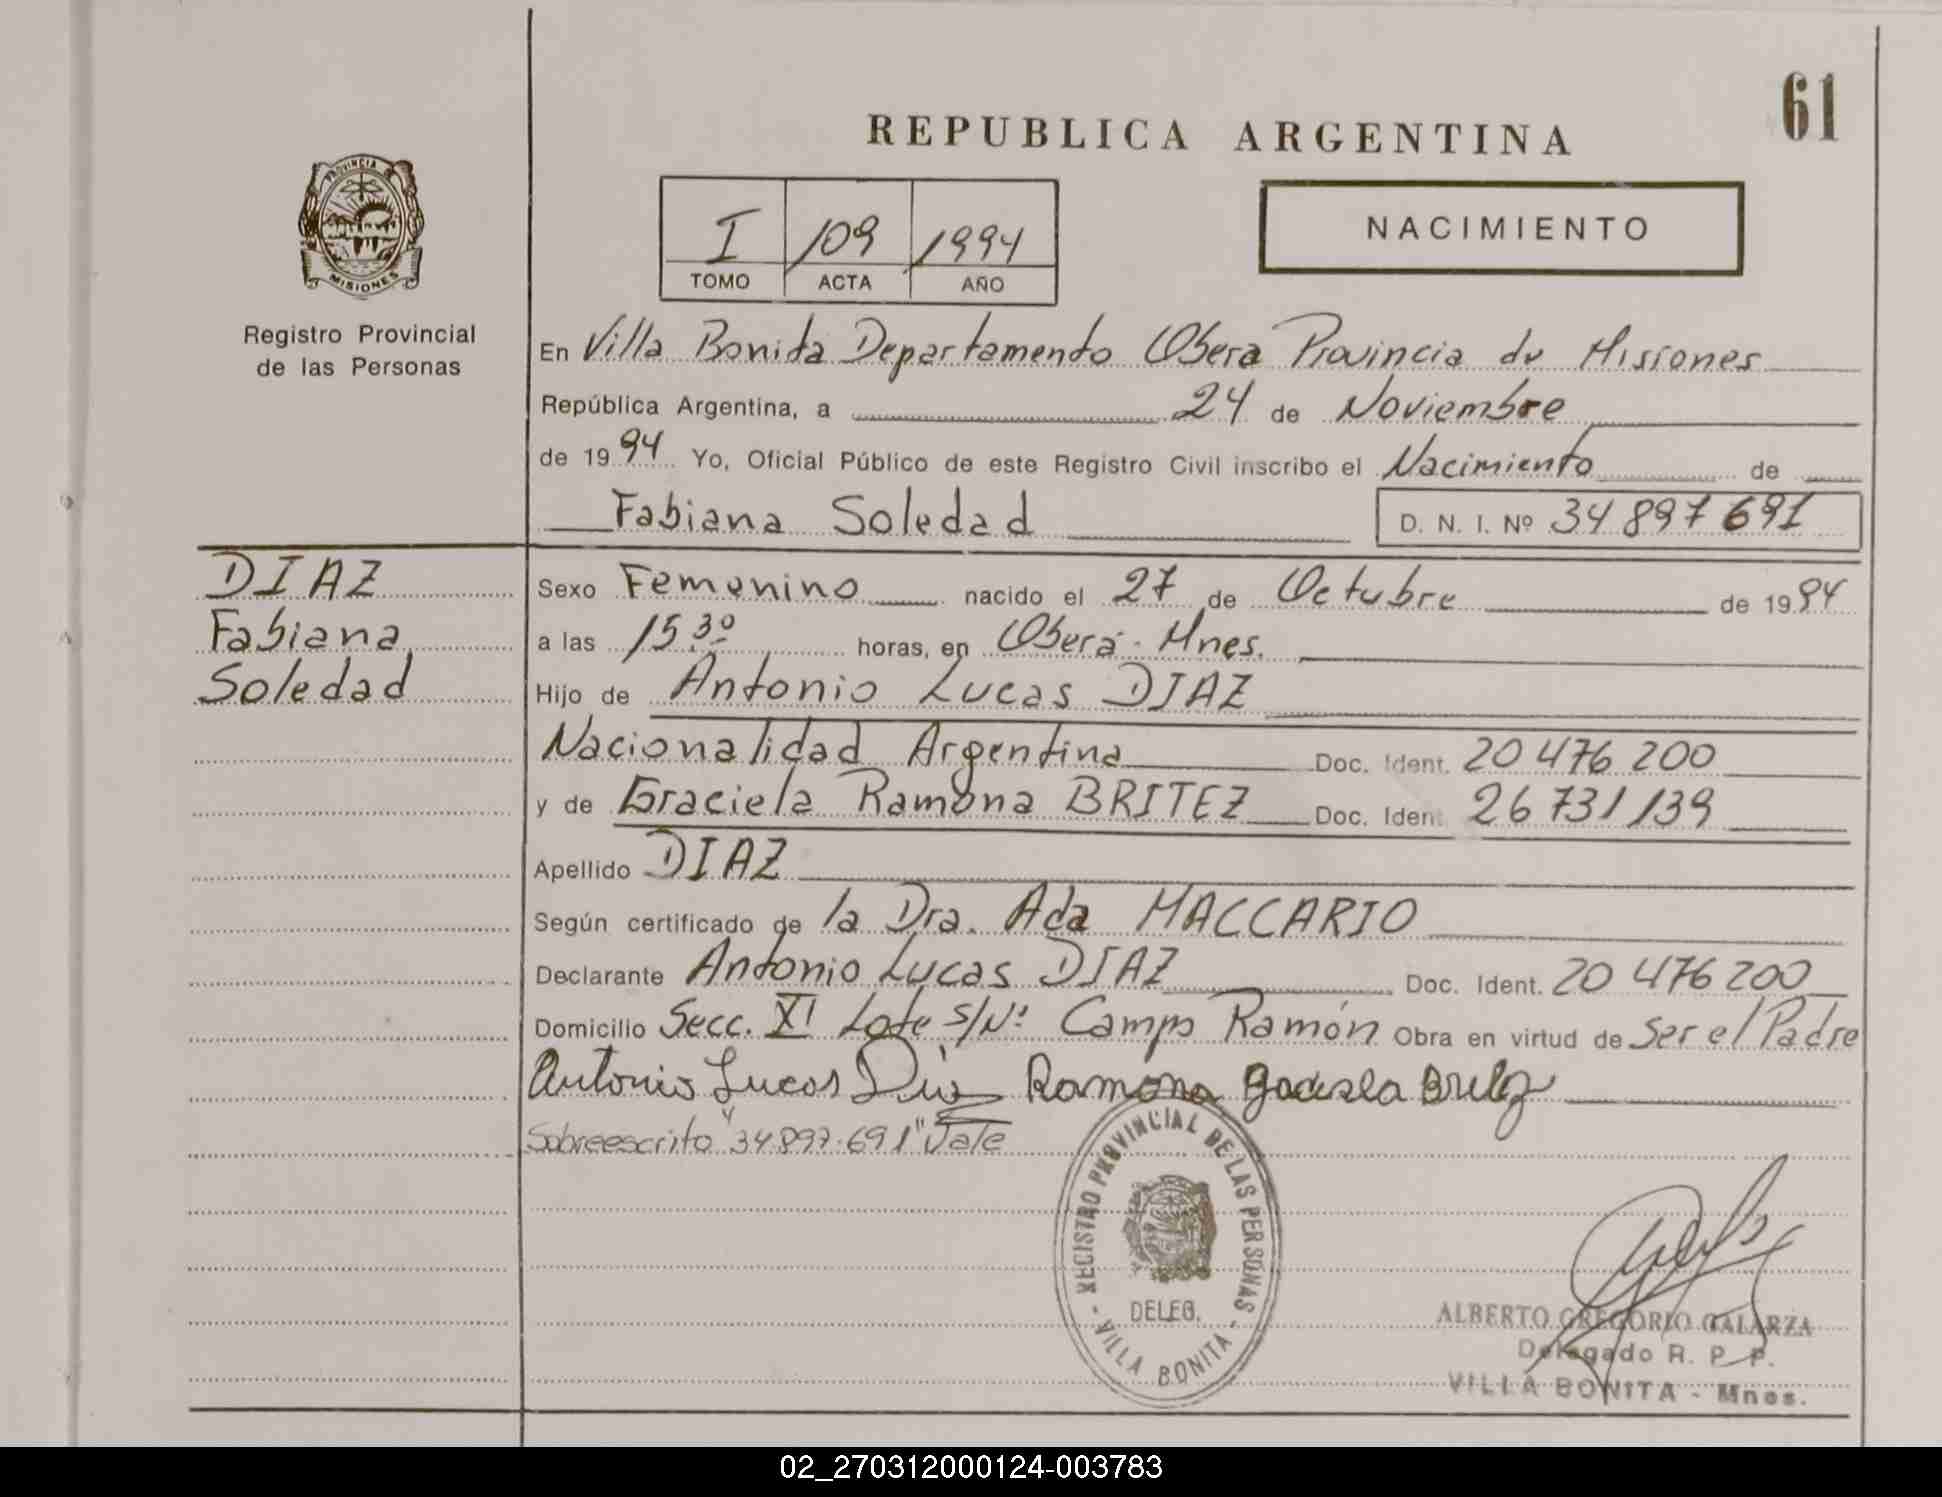 61
REPUBLICA ARGENTINA
PROVINCIA DE
MISIONES
Registro Provincial
de las Personas
I 109 1994
TOMO ACTA AÑO
NACIMIENTO
En Villa Bonita Departamento Obera Provincia de Misiones
República Argentina, a 24 de Noviembre
de 1994 Yo, Oficial Público de este Registro Civil inscribo el Nacimiento de
Fabiana Soledad D. N. I. Nº 34 897 691
DIAZ
Fabiana
Soledad
Sexo Femenino nacido el 27 de Octubre de 1994
a las 15.30 horas, en Oberá - Mnes.
Hijo de Antonio Lucas DIAZ
Nacionalidad Argentina Doc. Ident. 20 476 200
y de Graciela Ramona BRITEZ Doc. Ident. 26 731 139
Apellido DIAZ
Según certificado de la Dra. Ada MACCARIO
Declarante Antonio Lucas DIAZ Doc. Ident. 20 476 200
Domicilio Secc. XI Lote S/Nº Campo Ramón Obra en virtud de Ser el Padre
Antonio Lucas Diaz Ramona Graciela Britez
Sobreescrito "34.897.691" Vale
REGISTRO PROVINCIAL DE LAS PERSONAS
DELEG.
- VILLA BONITA -
ALBERTO GREGORIO GALARZA
Delegado R. P. P.
VILLA BONITA - Mnes.
02_270312000124-003783